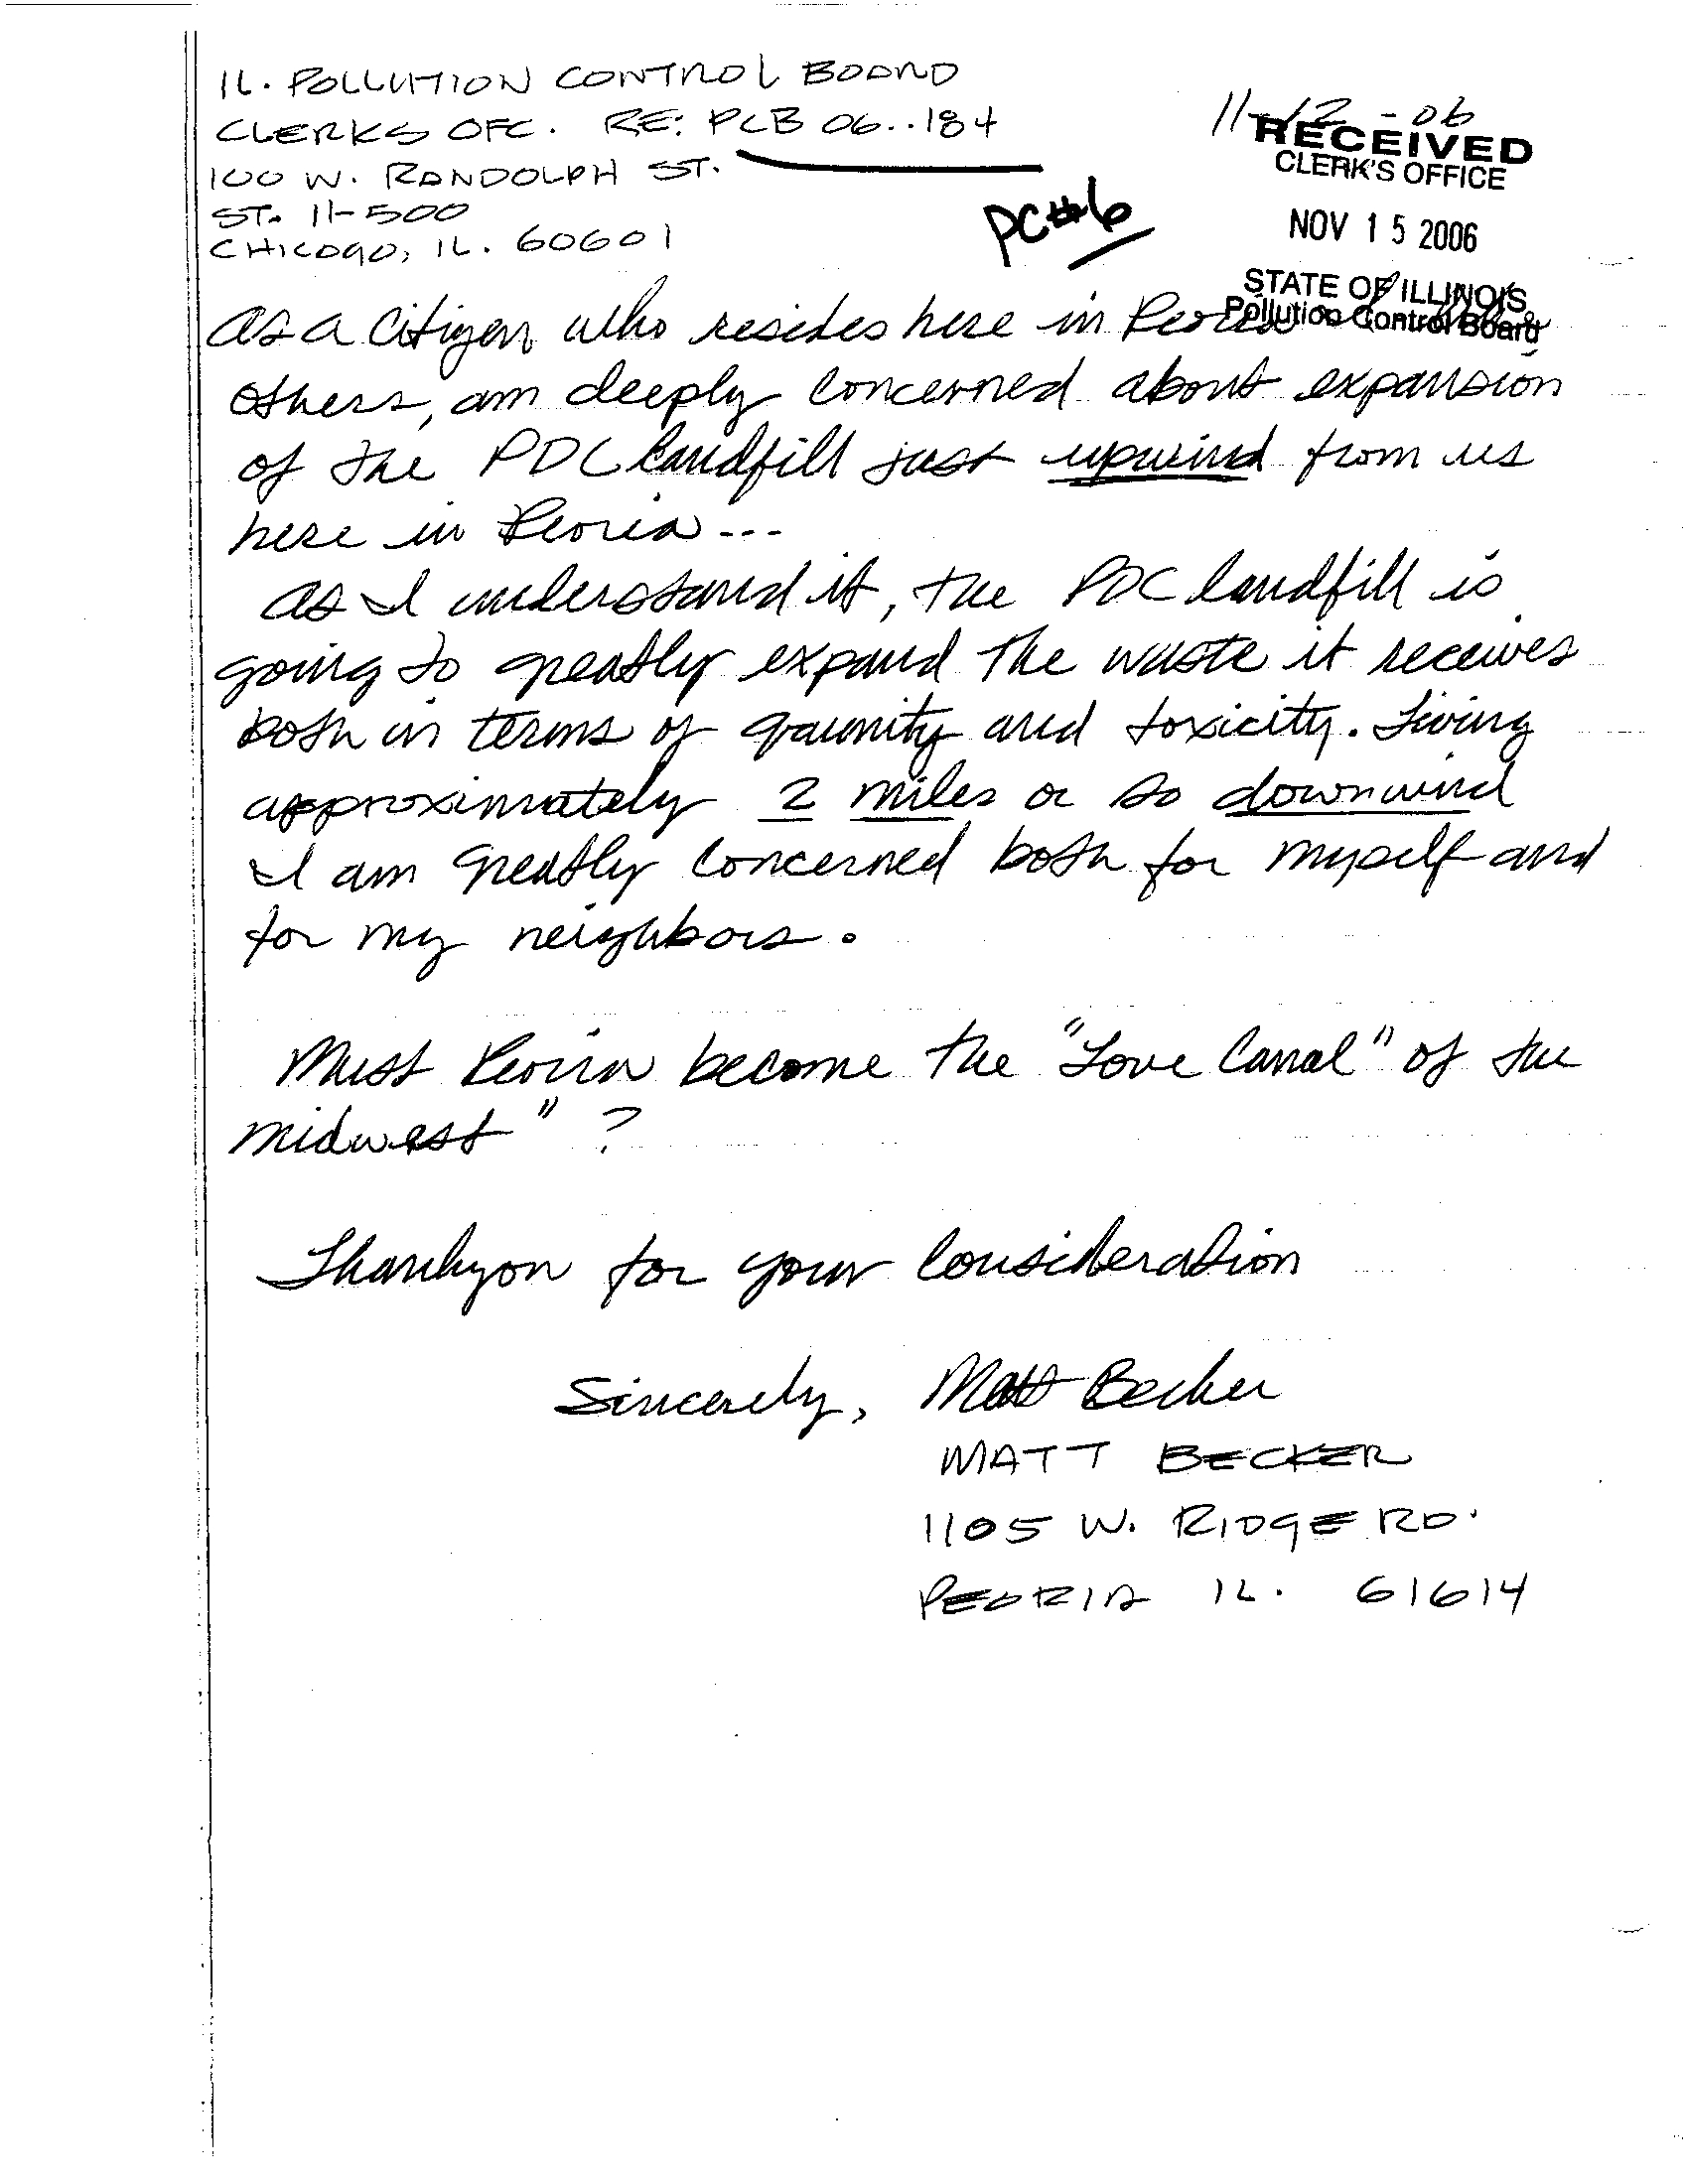 IL. POLLUTION CONTROL BOARD
CLERKS OFC. RE: PCB 06..184
100 W. RANDOLPH ST.
ST. 11-500
CHICAGO, IL. 60601
11-12-06
RECEIVED
CLERK'S OFFICE
NOV 15 2006
STATE OF ILLINOIS
Pollution Control Board
PC#6
As a Citizen who resides here in Peoria
others, am deeply concerned about expansion
of the PDC landfill just upwind from us
here in Peoria ---
As I understand it, the PDC landfill is
going to greatly expand the waste it receives
both in terms of qaunity and toxicity. Living
approximately 2 miles or so downwind
I am greatly concerned both for myself and
for my neighbors.
Must Peoria become the "Love Canal" of the
midwest" ?
Thankyou for your consideration
Sincerely, Matt Becker
MATT BECKER
1105 W. RIDGE RD.
PEORIA IL. 61614